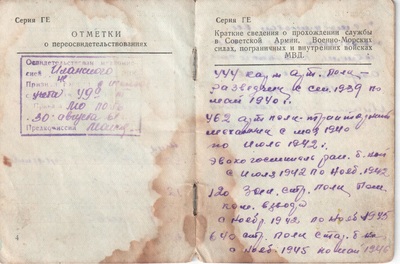 Серия ГЕ
ОТМЕТКИ
о переосвидетельствованиях
Освидетельствован
ской Иланского
учета УДВ
по
30 августа 61
4
Серия ГЕ
Краткие сведения о прохождении службы
в Советской Армии, Военно-Морских
силах, пограничных и внутренних войсках
МВД.
444 арт. полк —
разведчик с сен. 1939 по
май 1940 г.
462 арт полк-тракторист
механик с мая 1940
по июль 1942 г.
эвакогоспиталь ран. б-ной
с июля 1942 по нояб. 1942
120 зен. стр. полк пом.
ком. взвода
с нояб 1942 по нояб 1945
640 стр. полк
с нояб 1945 по май 1946